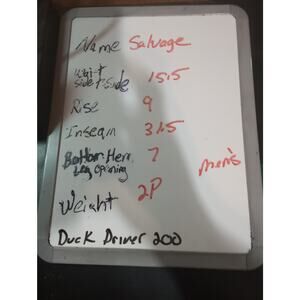 Name Salvage
Waist
side t side 15.5
Rise 9
Inseam 31.5
Bottom Hem 7
Leg opening
men's
Weight 2P
Duck Driver 200